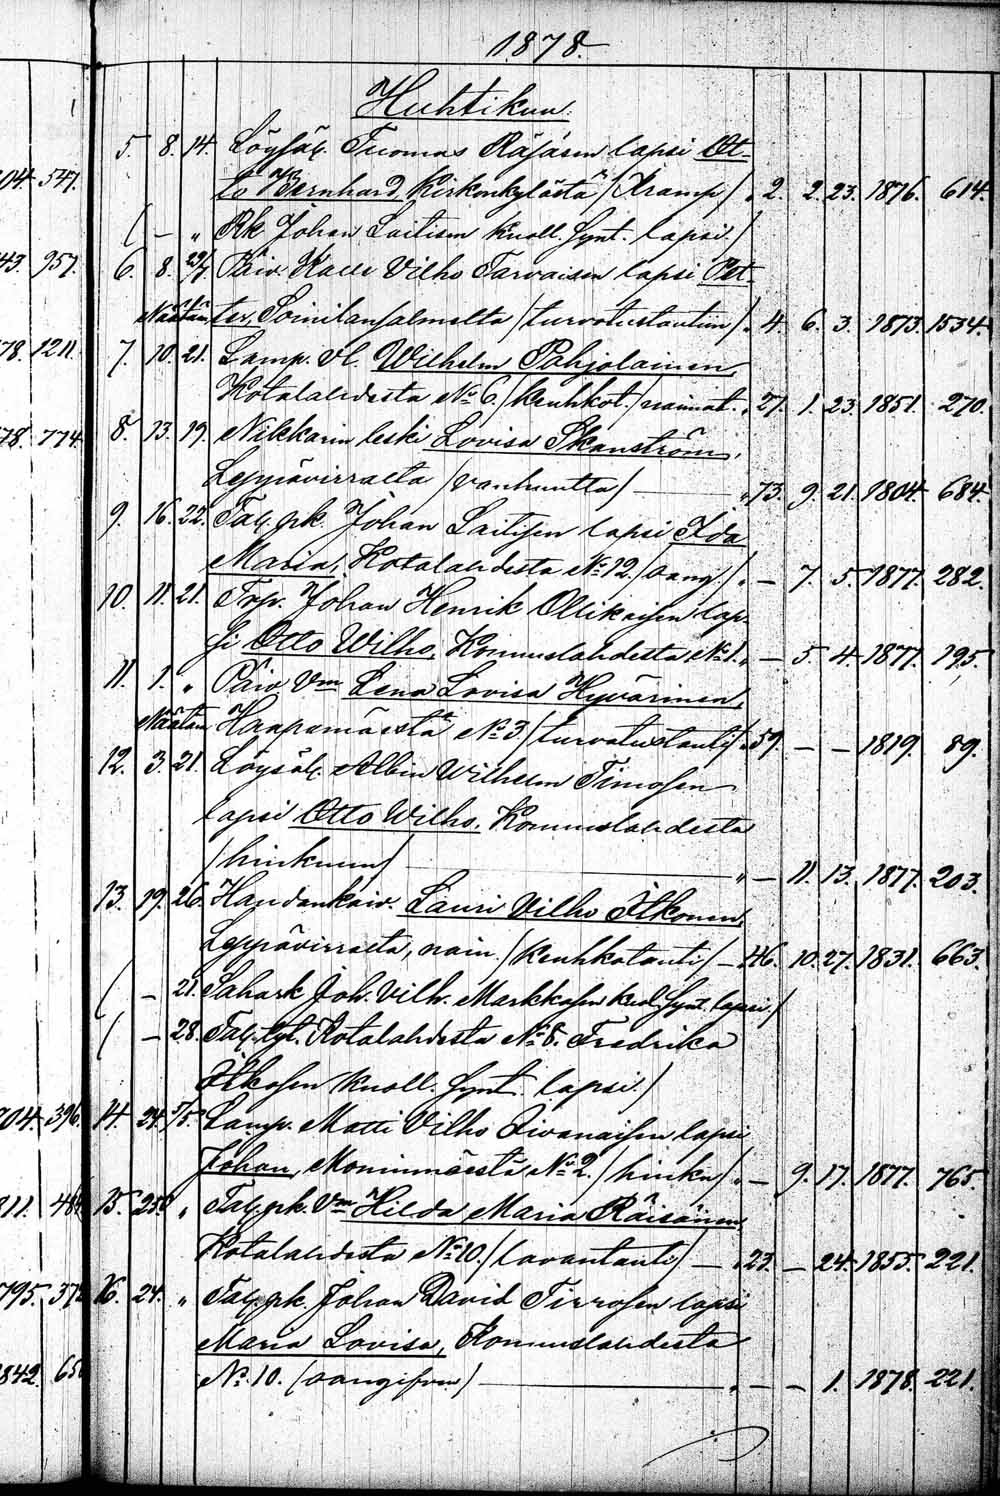 1878.
Huhtikuu.
5. 8. 14. Löysäl. Tuomas Räsäsen lapsi Ot-
04. 547. to Bernhard, Kirkonkylästä /Kramp/ " 2. 2. 23. 1876. 614.
( — " Rk Johan Laitisen kuoll. synt. lapsi.)
43. 957. 6. 8. 29/7 Päiv. Kalle Vilho Tarvaisen lapsi Pet-
ter, Soinilansalmelta /turvotustautiin/ " 4. 6. 3. 1873. 1534.
78. 1211. 7. 10. 21. Lamp. vl. Wilhelm Pohjolainen,
Kotalahdesta No 6. /keuhkot./ nainut. " 27. 1. 23. 1851. 270.
78. 774. 8. 13. 19. Nikkarin leski Lovisa Skanström,
Leppävirralta /vanhuutta/ — " 73. 9. 21. 1804. 684.
9. 16. 22. Tal. pk. Johan Laitisen lapsi Ida
Maria, Kotalahdesta No 12. /aang./ " — 7. 5. 1877. 282.
10. 11. 21. Torp. Johan Henrik Ollikaisen lap-
si Otto Wilho, Konnuslahdesta No 1. " — 5. 4. 1877. 195.
11. 1. " Päiv Vm Lena Lovisa Hyvärinen,
Haapamäestä No 3 /turvotustauti/ " 59. — — 1819. 89.
12. 3. 21. Löysäl. Albin Wilhelm Timosen
lapsi Otto Wilho, Konnuslahdesta
/hinkuun/ — " — 11. 13. 1877. 203.
13. 19. 26. Haudankaiv. Lauri Vilho Itkonen,
Leppävirralta, nain. /keuhkotauti/ — " 46. 10. 27. 1831. 663.
( — 21. Sahark Joh. Vilh. Markkasen kuol. synt. lapsi./
( — 28. Tal. tyt. Kotalahdesta No 8. Fredrika
Itkosen kuoll. synt. lapsi.)
04. 396. 14. 24. 5/5. Lamp. Matti Vilho Iivanaisen lapsi
Johan, Moninmäestä No 2. /hinku/ " — 9. 17. 1877. 765.
811. 15. 25. " Tal. pk. Vm Hilda Maria Räisänen,
Kotalahdesta No 10. /lavantauti/ — " 23. — 24. 1855. 221.
795. 16. 24. " Tal. pk. Johan David Tirrosen lapsi
Maria Lovisa, Konnuslahdesta
842. No. 10. (aangifven) — " — — 1. 1878. 221.